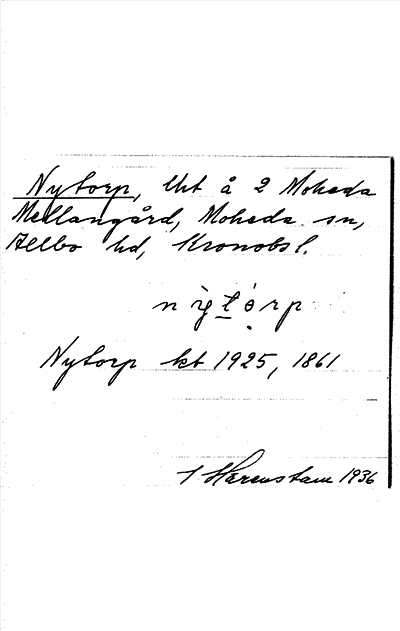 Nytorp, lht å 2 Moheda
Mellangård, Moheda sn,
Allbo hd, Kronobs l.
Nytorp kt 1925, 1861
Harenstam 1936